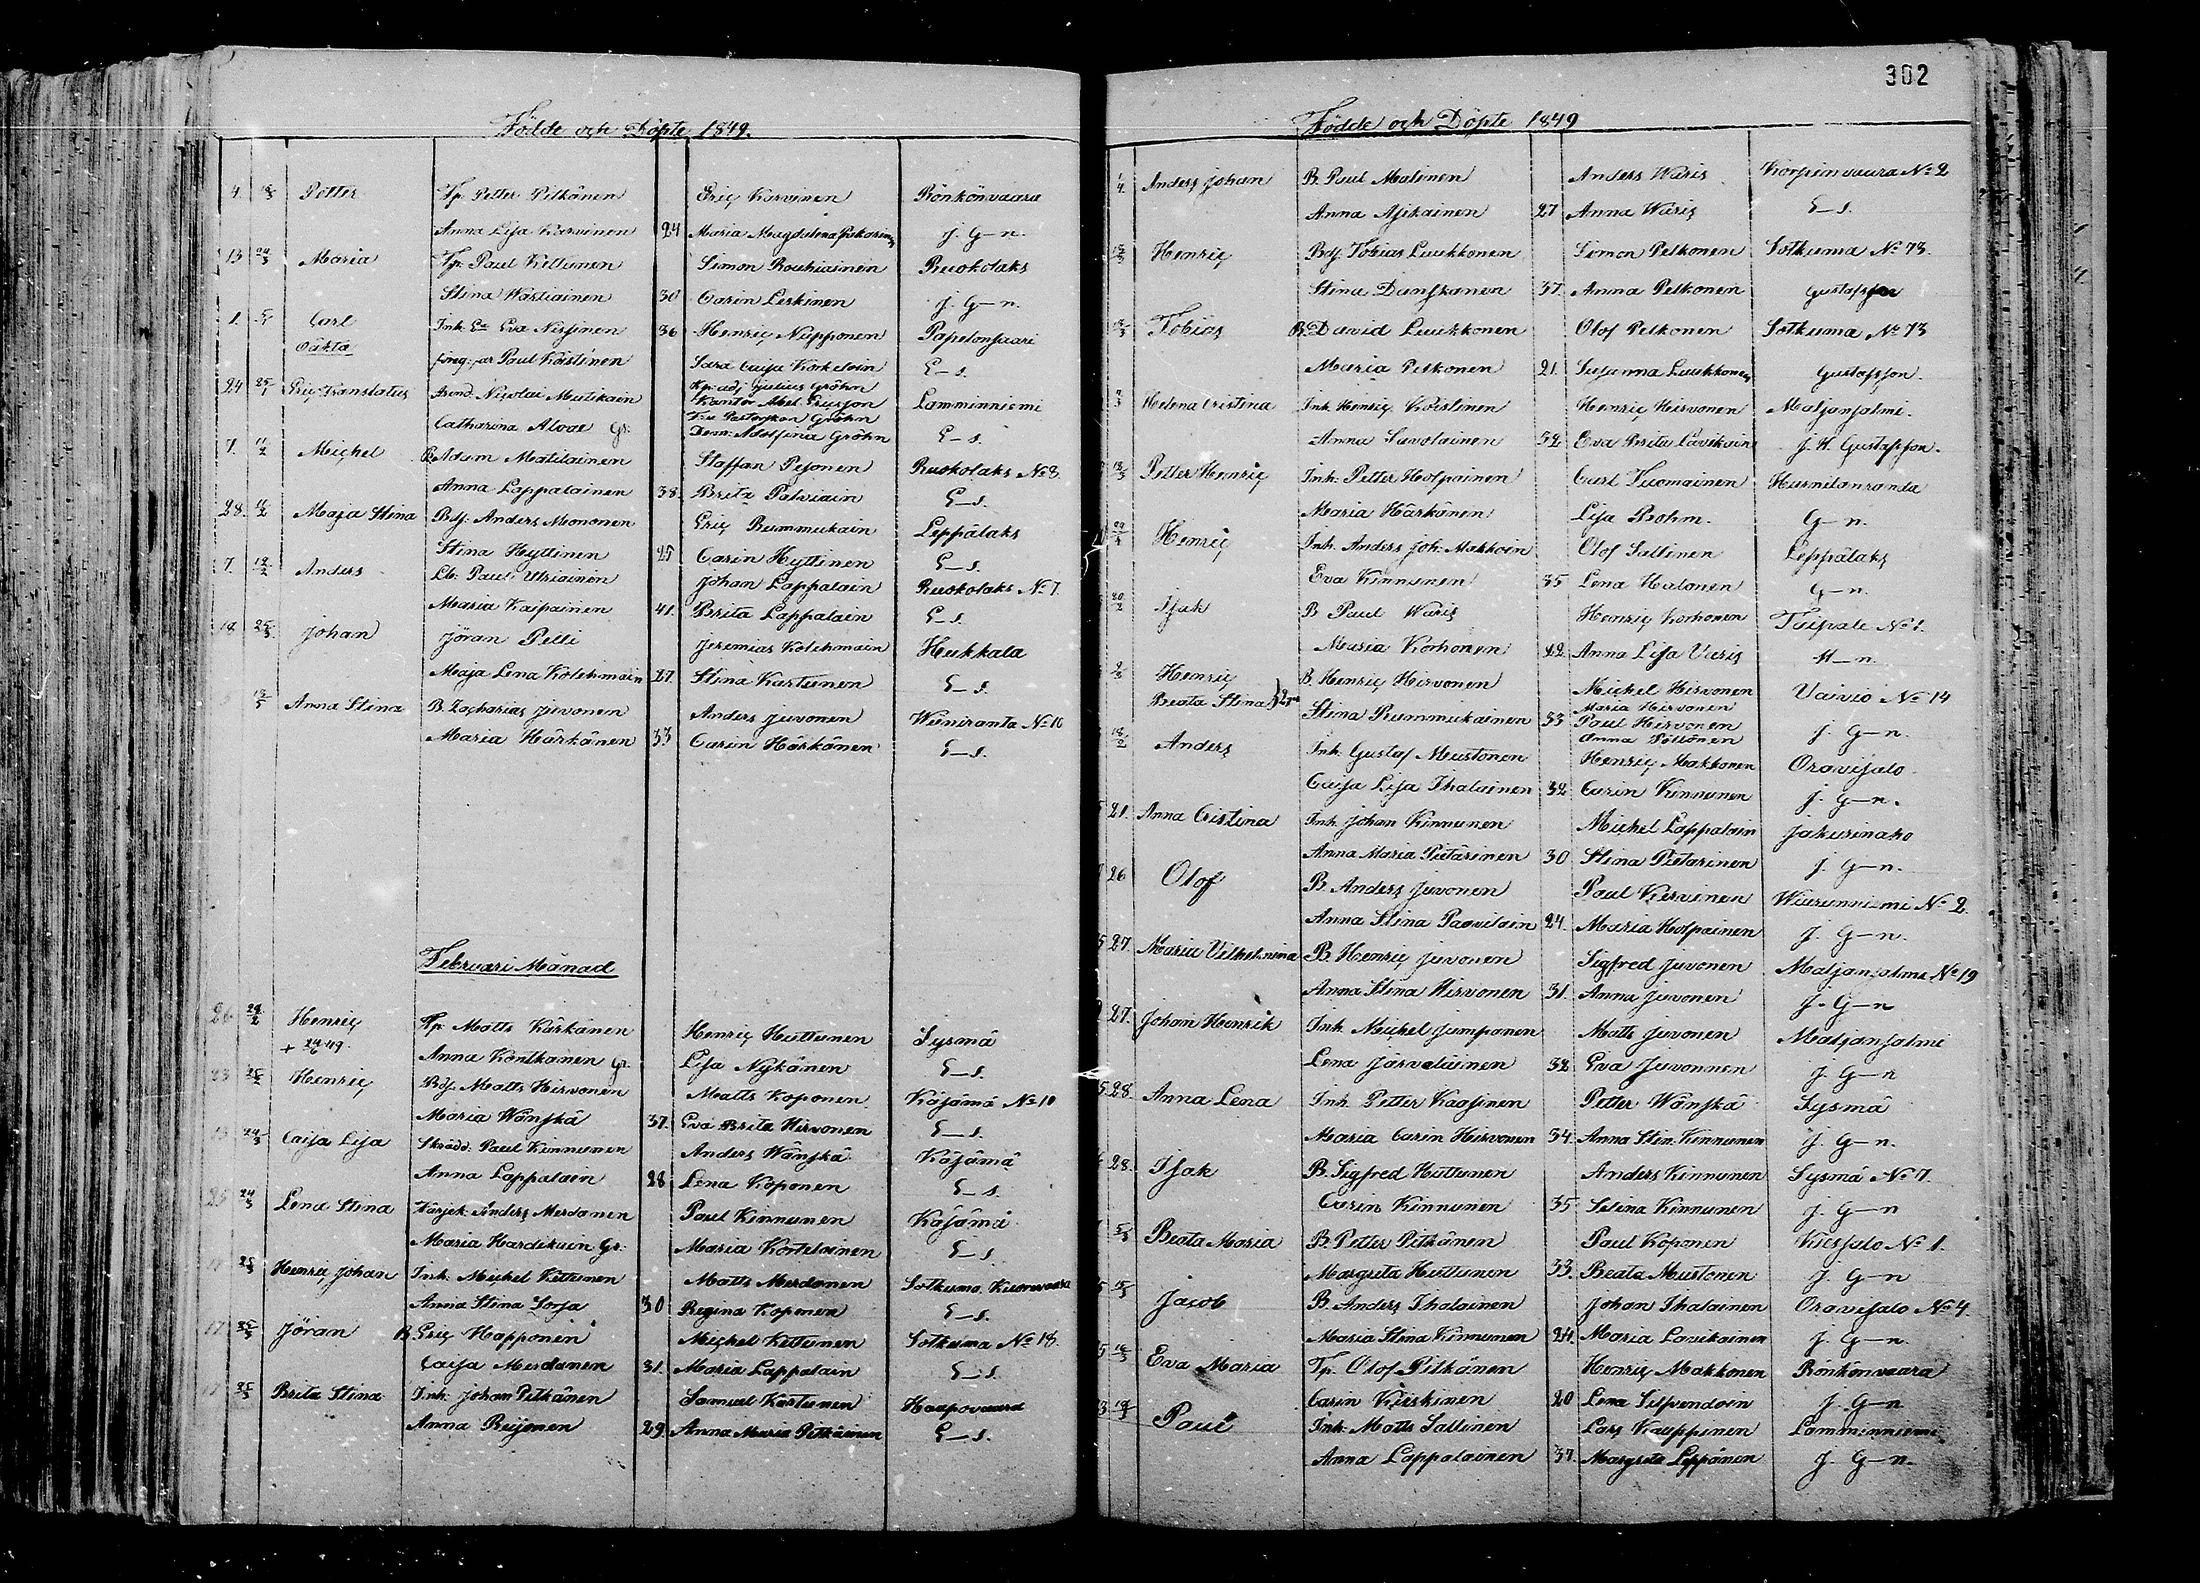 302
Födde och Döpte 1849.
4. Petter Tp. Petter Pitkänen Eric Karvinen Rönkönvaara
Anna Lisa Karvinen 24 Maria Magdalena J. G-n.
13 24/3 Maria Tp. Paul Kettunen Simon Rouhiainen Ruokolaks
Stina Wastiainen 30 Carin Leskinen J. G-n.
1. Carl Inh. Eva Nissinen 36 Henric Nupponen Papelonsaari
oäkta Paul Koistinen Sara Caisa E-s.
24 25/1 Eric Translatus Arend. Nicolai Mutikain Kp. adj. Julius Gröhn Lamminniemi
Kantor Abel Ericsson
Catharina Gr. Gröhn
Dem. Adolfina Gröhn E-s.
7. Michel B. Adam Matilainen Staffan Pesonen Ruokolaks No 8.
Anna Lappalainen 38. Brita Palviain E-s.
28. Maja Stina Bds. Anders Mononen Eric Rummukain Leppälaks
Stina Hyttinen 25 Carin Hyttinen E-s.
7. 18/2 Anders Lb. Paul Utriainen Johan Lappalain Ruokolaks No 7
Maria Kaipainen 41. Brita Lappalain E-s.
18 25/3 Johan Jöran Pelli Jeremias Kolehmain Hukkala
Maja Lena Kolehmain 27. Stina Kartunen E-s.
Anna Stina B. Zacharias Juvonen Anders Juvonen Winiranta No 10
Maria Härkänen 33 Carin Härkänen E-s.
Februari Månad
26 24/2 Henric Tp. Matts Kärkänen Henric Huttunen Sysmä
+ 24/6 49. Anna Kontkanen Gr. Lisa Nykänen E-s.
23 25/2 Henric Bds. Matts Hirvonen Matts Koponen Käsämä No 10
Maria Wänskä 37. Eva Brita Hirvonen E-s.
24/3 Caisa Lisa Skrädd. Paul Kinnunen Anders Wänskä Käsämä
Anna Lappalain 28 Lena Koponen E-s.
25 24/3 Lena Stina Anders Merdanen Paul Kinnunen Käsämä
Maria Hardikain Gr. Maria Kortelainen E-s.
25/3 Henric Johan Inh. Michel Kettunen Matts Merdanen Sotkuma Kuorevaara
Anna Stina Sorsa 30 Regina Koponen E-s.
17 25/3 Jöran B. Eric Happonen Michel Kettunen Sotkuma No 18.
Caisa Merdanen 31. Maria Lappalain E-s.
25/3 Brita Stina Inh. Johan Pitkänen Samuel Kartunen Haapovaara
Anna Reijonen 29. Anna Maria Pitkäinen E-s.
Födde och Döpte 1849
1/4 Anders Johan B. Paul Matinen Anders Waris Korpinvaara No 2
Anna Asikainen 27 Anna Waris E-s.
Henric Bds. Tobias Luukkonen Simon Pelkonen Sotkuma No 73.
Stina Danskanen 37. Anna Pelkonen Gustafsson
Tobias B. David Luukkonen Olof Pelkonen Sotkuma No 73
Maria Pelkonen 21. Susanna Luukkonen Gustafsson.
Helena Cristina Inh. Henric Koistinen Henric Hirvonen Maljansalmi.
Anna Savolainen 32 Eva Brita Lavikain J. H. Gustafsson.
Petter Henric Inh. Petter Holpainen Carl Tuomainen Hurmilanranda
Maria Härkönen Lisa Bohm. G-n.
Henric Inh. Anders Joh. Makkoin Olof Sallinen Leppälaks
Eva Kinnunen 35 Lena Halonen G-n.
20/2 Isak B Paul Waris Henric Korhonen Taipale No 1.
Maria Korhonen 42 Anna Lisa Varis H-n.
Henric B. Henric Hirvonen Michel Hirvonen Vaivio No 14
Beata Stina Maria Hirvonen
Stina Rummukainen 33 Paul Hirvonen J. G-n.
Anna
18/2 Anders Inh. Gustaf Mustonen Henric Makkonen Oravisalo
Caisa Lisa Ihalainen 32 Carin Kinnunen J. G-n.
21. Anna Cristina Inh. Johan Kinnunen Michel Lappalain Jakusinaho
Anna Maria Pietarinen 30 Stina Pietarinen J. G-n.
26 Olof B. Anders Juvonen Paul Kiervinen Wiurunniemi No 2.
Anna Stina Paavilain 24. Maria Holpainen J. G-n.
27. Maria Vilhelmina B. Henric Juvonen Sigfred Juvonen Maljansalmi No 19
Anna Stina Hirvonen 31. Anna Juvonen J. G-n
27. Johan Henrik Inh. Michel Jumpanen Matts Juvonen Maljansalmi
Lena Järveläinen 32 Eva Juvonnen J. G-n
28 Anna Lena Inh. Petter Kaasinen Petter Wänskä Sysmä
Maria Carin Hirvonen 34. Anna Stin. Kinnunen J. G-n.
28. Isak B. Sigfred Huttunen Anders Kinnunen Sysmä No 7.
Carin Kinnunen 35 Stina Kinnunen J. G-n
Beata Maria B. Petter Pitkänen Paul Koponen Kiessalo No 1.
Margreta Huttunen 33. Beata Mustonen J. G-n
Jacob B. Anders Ihalainen Johan Ihalainen Oravisalo No 4.
Maria Stina Kinnunen 24. Maria Lavikainen J. G-n.
Eva Maria Tp. Olof Pitkänen Henric Makkonen Rönkönvaara
Carin Kieskinen 20 Lena Silvendoin J. G-n
Paul Inh. Matts Sallinen Lars Kauppinen Lamminniemi
Anna Lappalainen 37. Margreta Leppänen J. G-n.